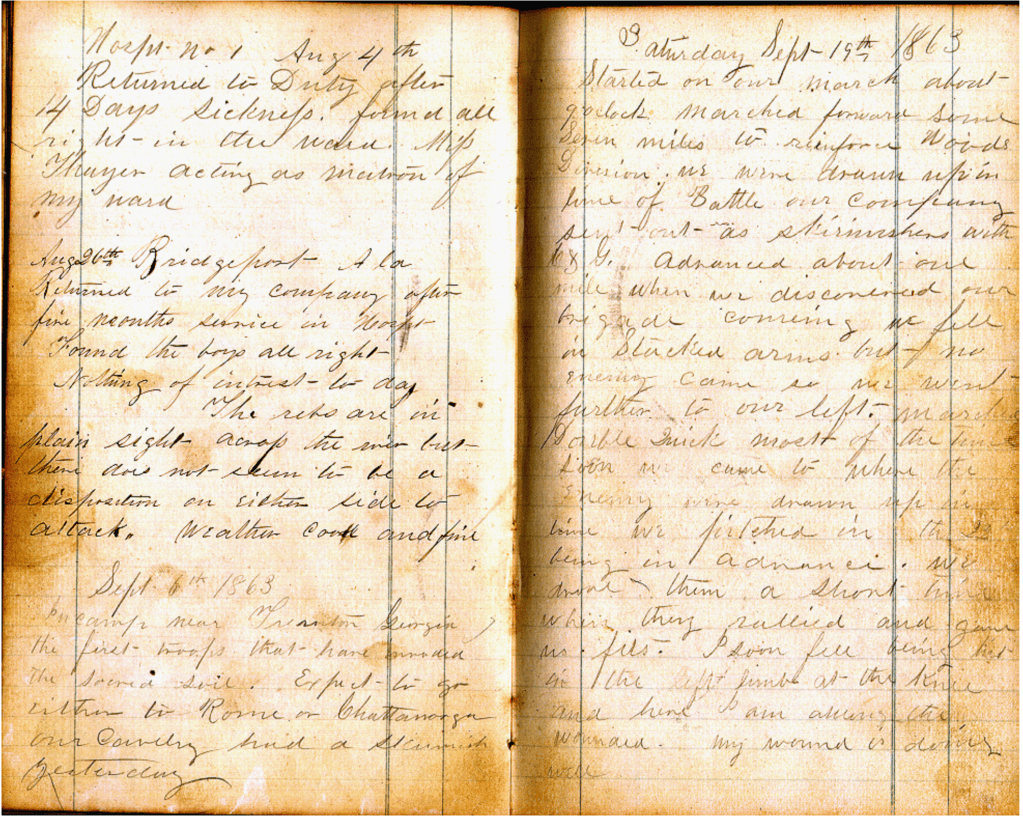 Hospt. No 1 Aug 4th
Returned to Duty after
14 Days sickness. found all
right in the ward. Miss
Thayer acting as matron of
my ward
Aug 26th Bridgeport Ala
Returned to my company after
five months service in Hospt
Found the boys all right
Nothing of intrest to day
The rebs are in
plain sight across the river but
there does not seem to be a
disposition on either side to
attack. Weather cool and fine
Sept 6th 1863
Encamp near Trennton Georgia
the first troops that have invaded
the sacred soil. Expect to go
either to Rome or Chattanooga
our Cavelry had a skirmish
yesterday
Saturday Sept 19th 1863
Started on our march about
oclock marched forward some
Seven miles to reinforce Woods
Division. we were drawn up in
line of Battle our company
sent out as skirmishers with
& G. advanced about one
mile when we discovered our
brigade coming we fell
in Stacked arms but no
enemy came so we went
further to our left. marched
Double Quick most of the time
soon we came to where the
Enemy were drawn up in
line we pitched in the
being in advance. we
drove them a short time
when they rallied and gave
us fits. I soon fell being hit
in the left limb at the Knee
and here I am among the
wounded. my wound is doing
well